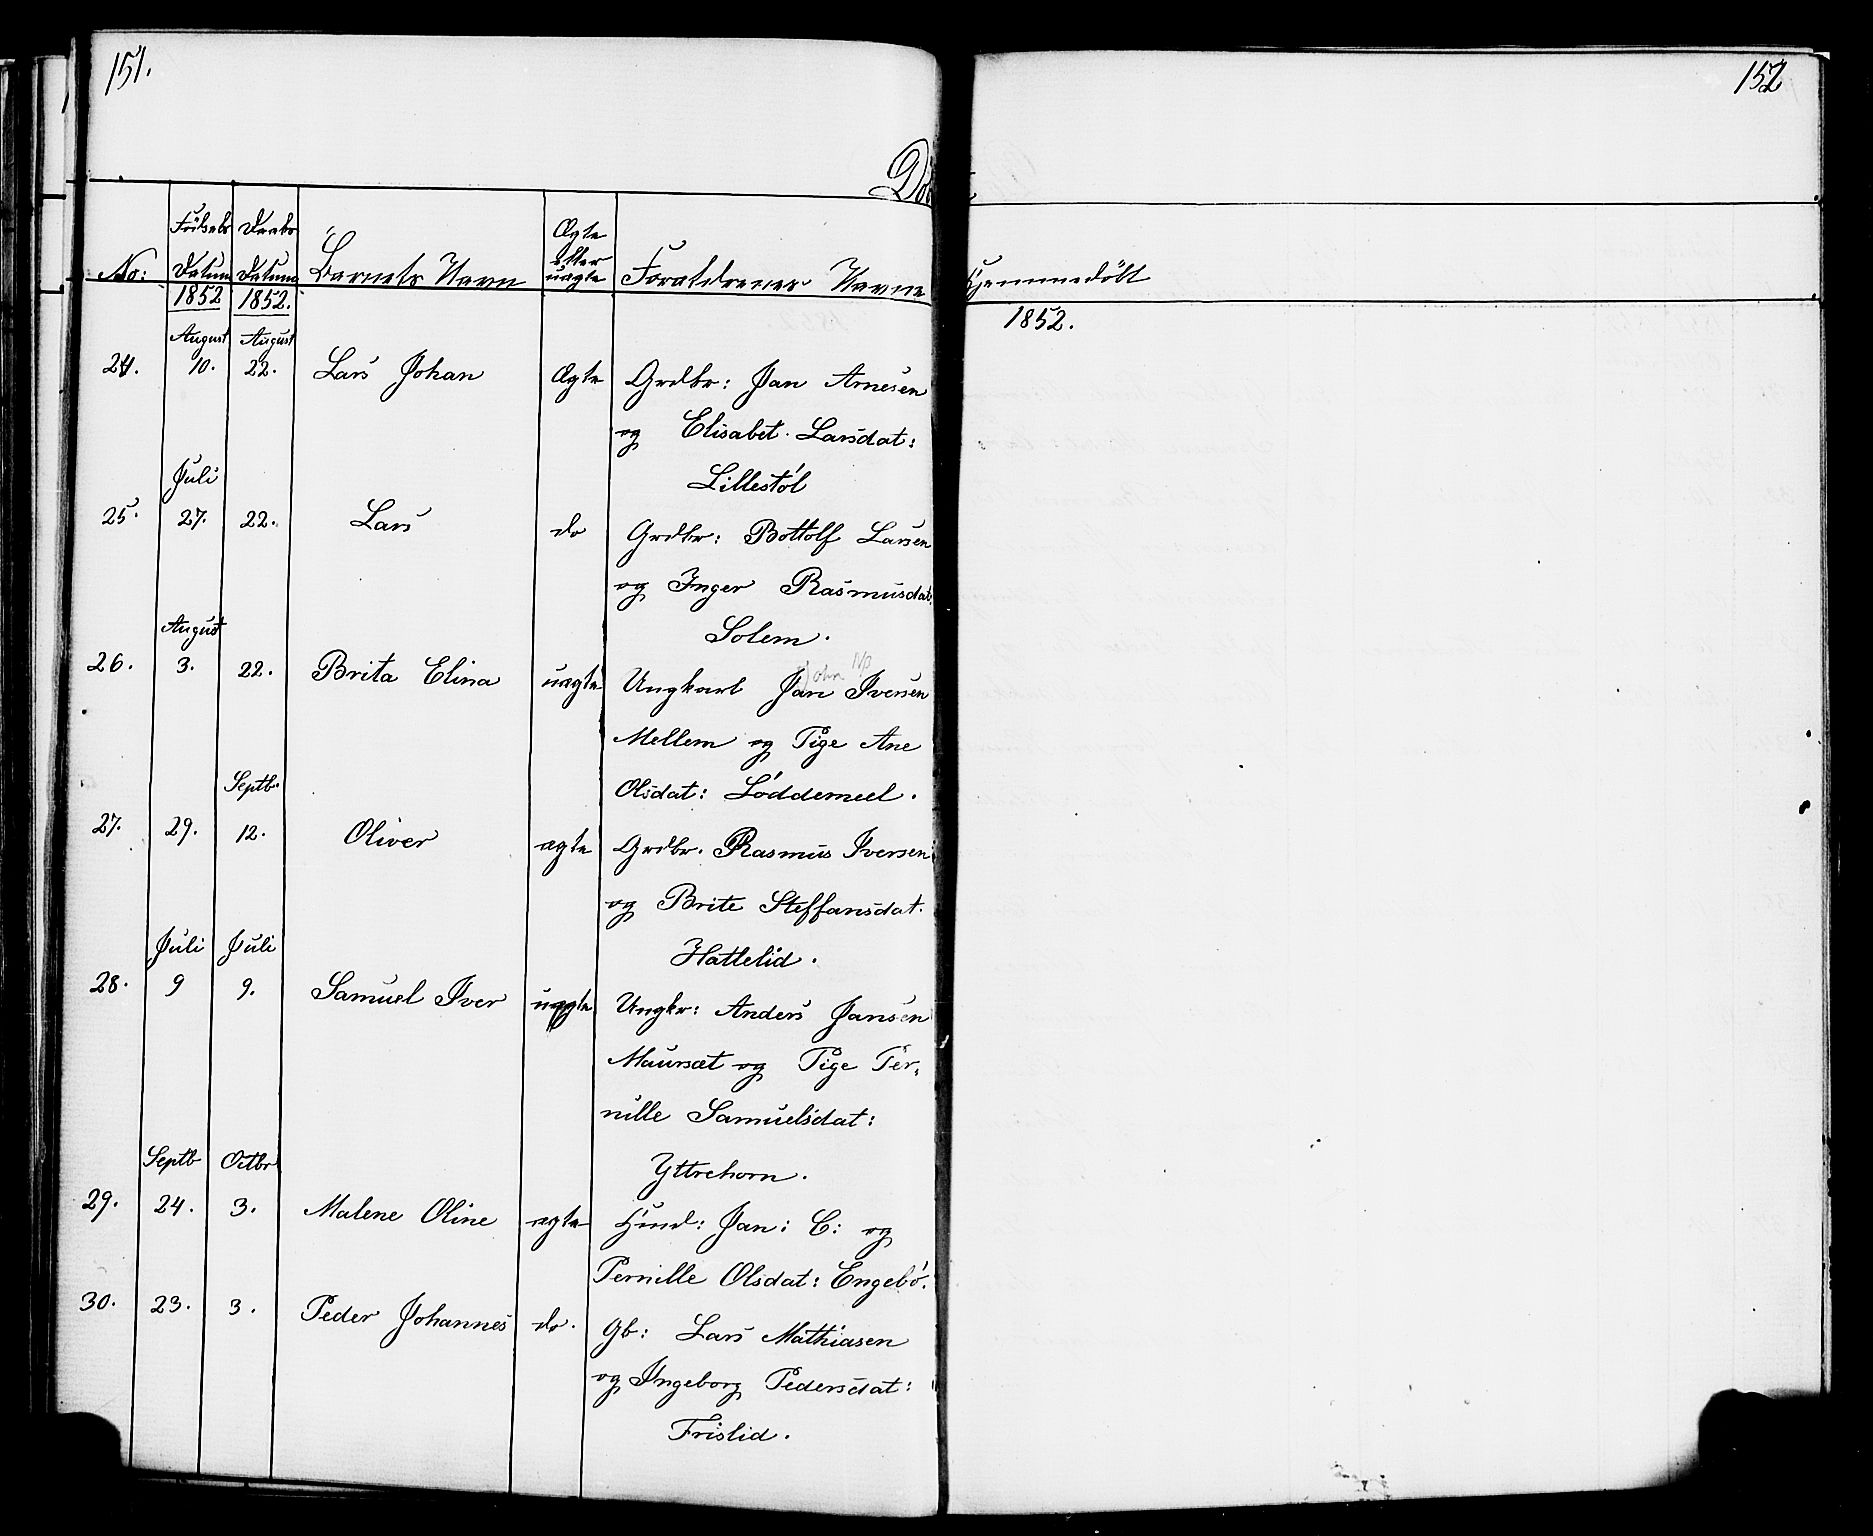 151.
152
Døbte
No: Födsels Datum Daabs Datum Barnets Navn Ægte eller uægte Forældrenes Navne Hjemmedöbt
1852 1852. 1852.
August August
24. 10. 22. Lars Johan Ægte Grdbr: Jan Arnesen
og Elisabet Larsdat:
Lillestøl
Juli
25. 27. 22. Lars do Grdbr: Bottolf Larsen
og Inger Rasmusdat.
Solem.
August
John NB
26. 3. 22. Brita Elina uægte Ungkarl Jan Iversen
Mellem og Pige Ane
Olsdat: Løddemeel.
Septb.
27. 29. 12. Oliver ægte Grdbr. Rasmus Iversen
og Brite Steffansdat.
Hattelid.
Juli Juli
28. 9 9. Samuel Iver uægte Ungkr: Anders Jansen
Maursæt og Pige Per„
nille Samuelsdat:
Yttrehorn.
Septb Octbr
29. 24. 3. Malene Oline ægte Huusm: Jan: C: og
Pernille Olsdat: Engebø.
30. 23. 3. Peder Johannes do. Gb: Lars Mathiasen
og Ingeborg Pedersdat:
Frislid.